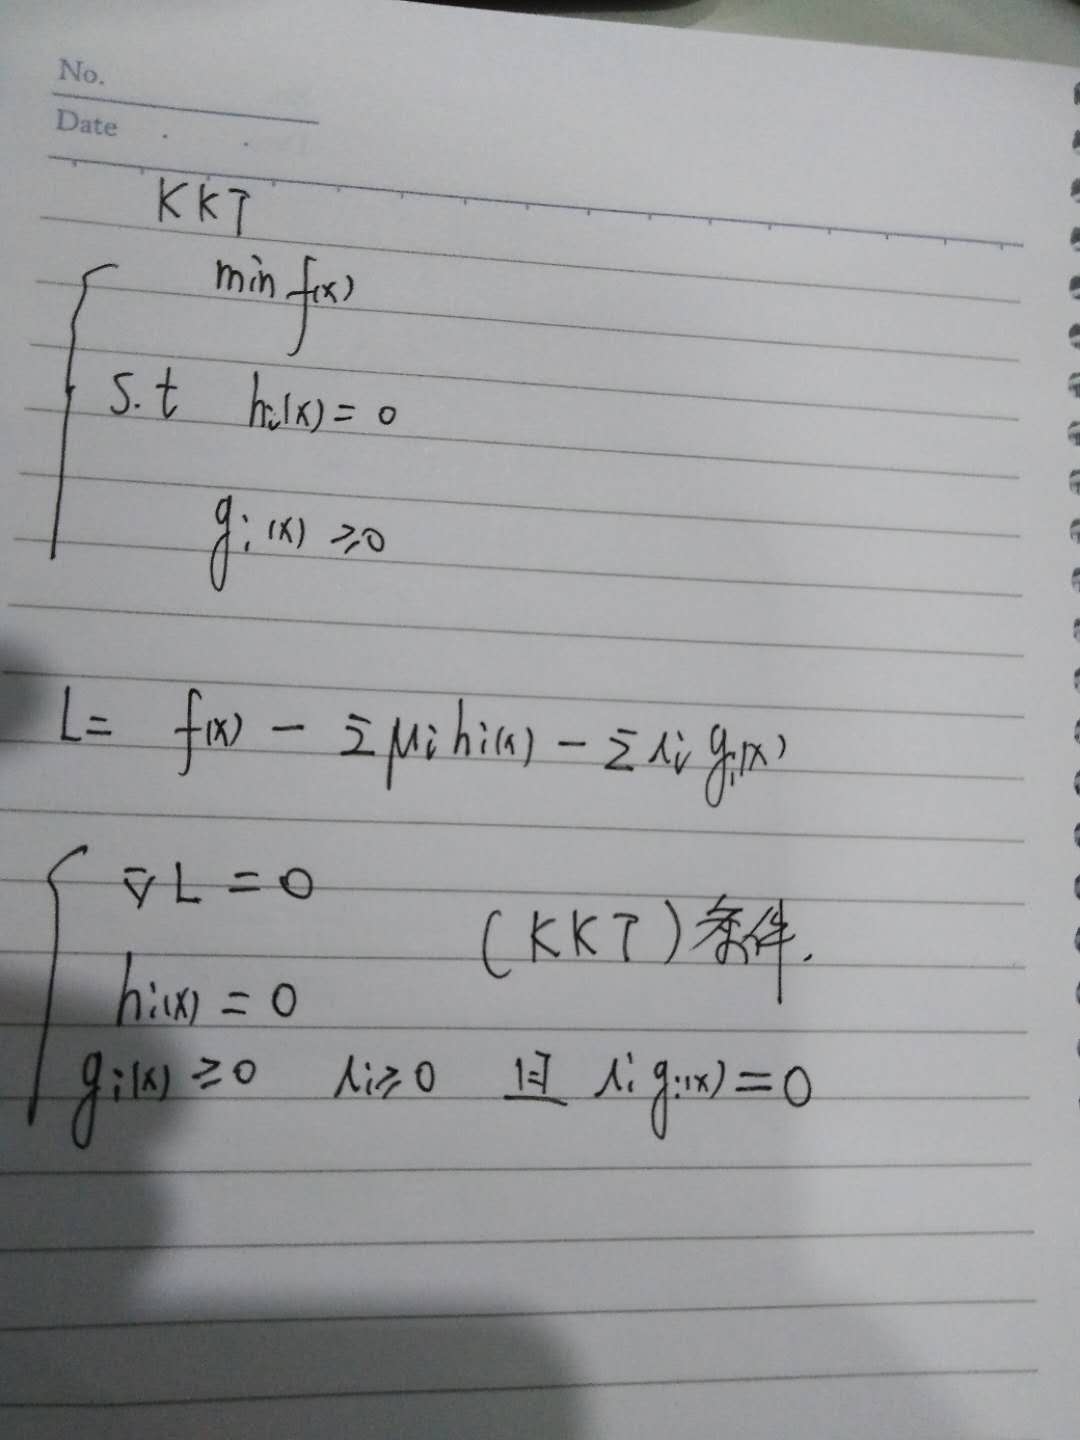 No.
Date
KKT
min f(x)
s.t hi(x) = 0
gi(x) ≥0
L= f(x) - Σ μi hi(x) - Σ λi gi(x)
∇L = 0
(KKT)条件.
hi(x) = 0
gi(x) ≥0 λi≥0 且 λi gi(x) = 0